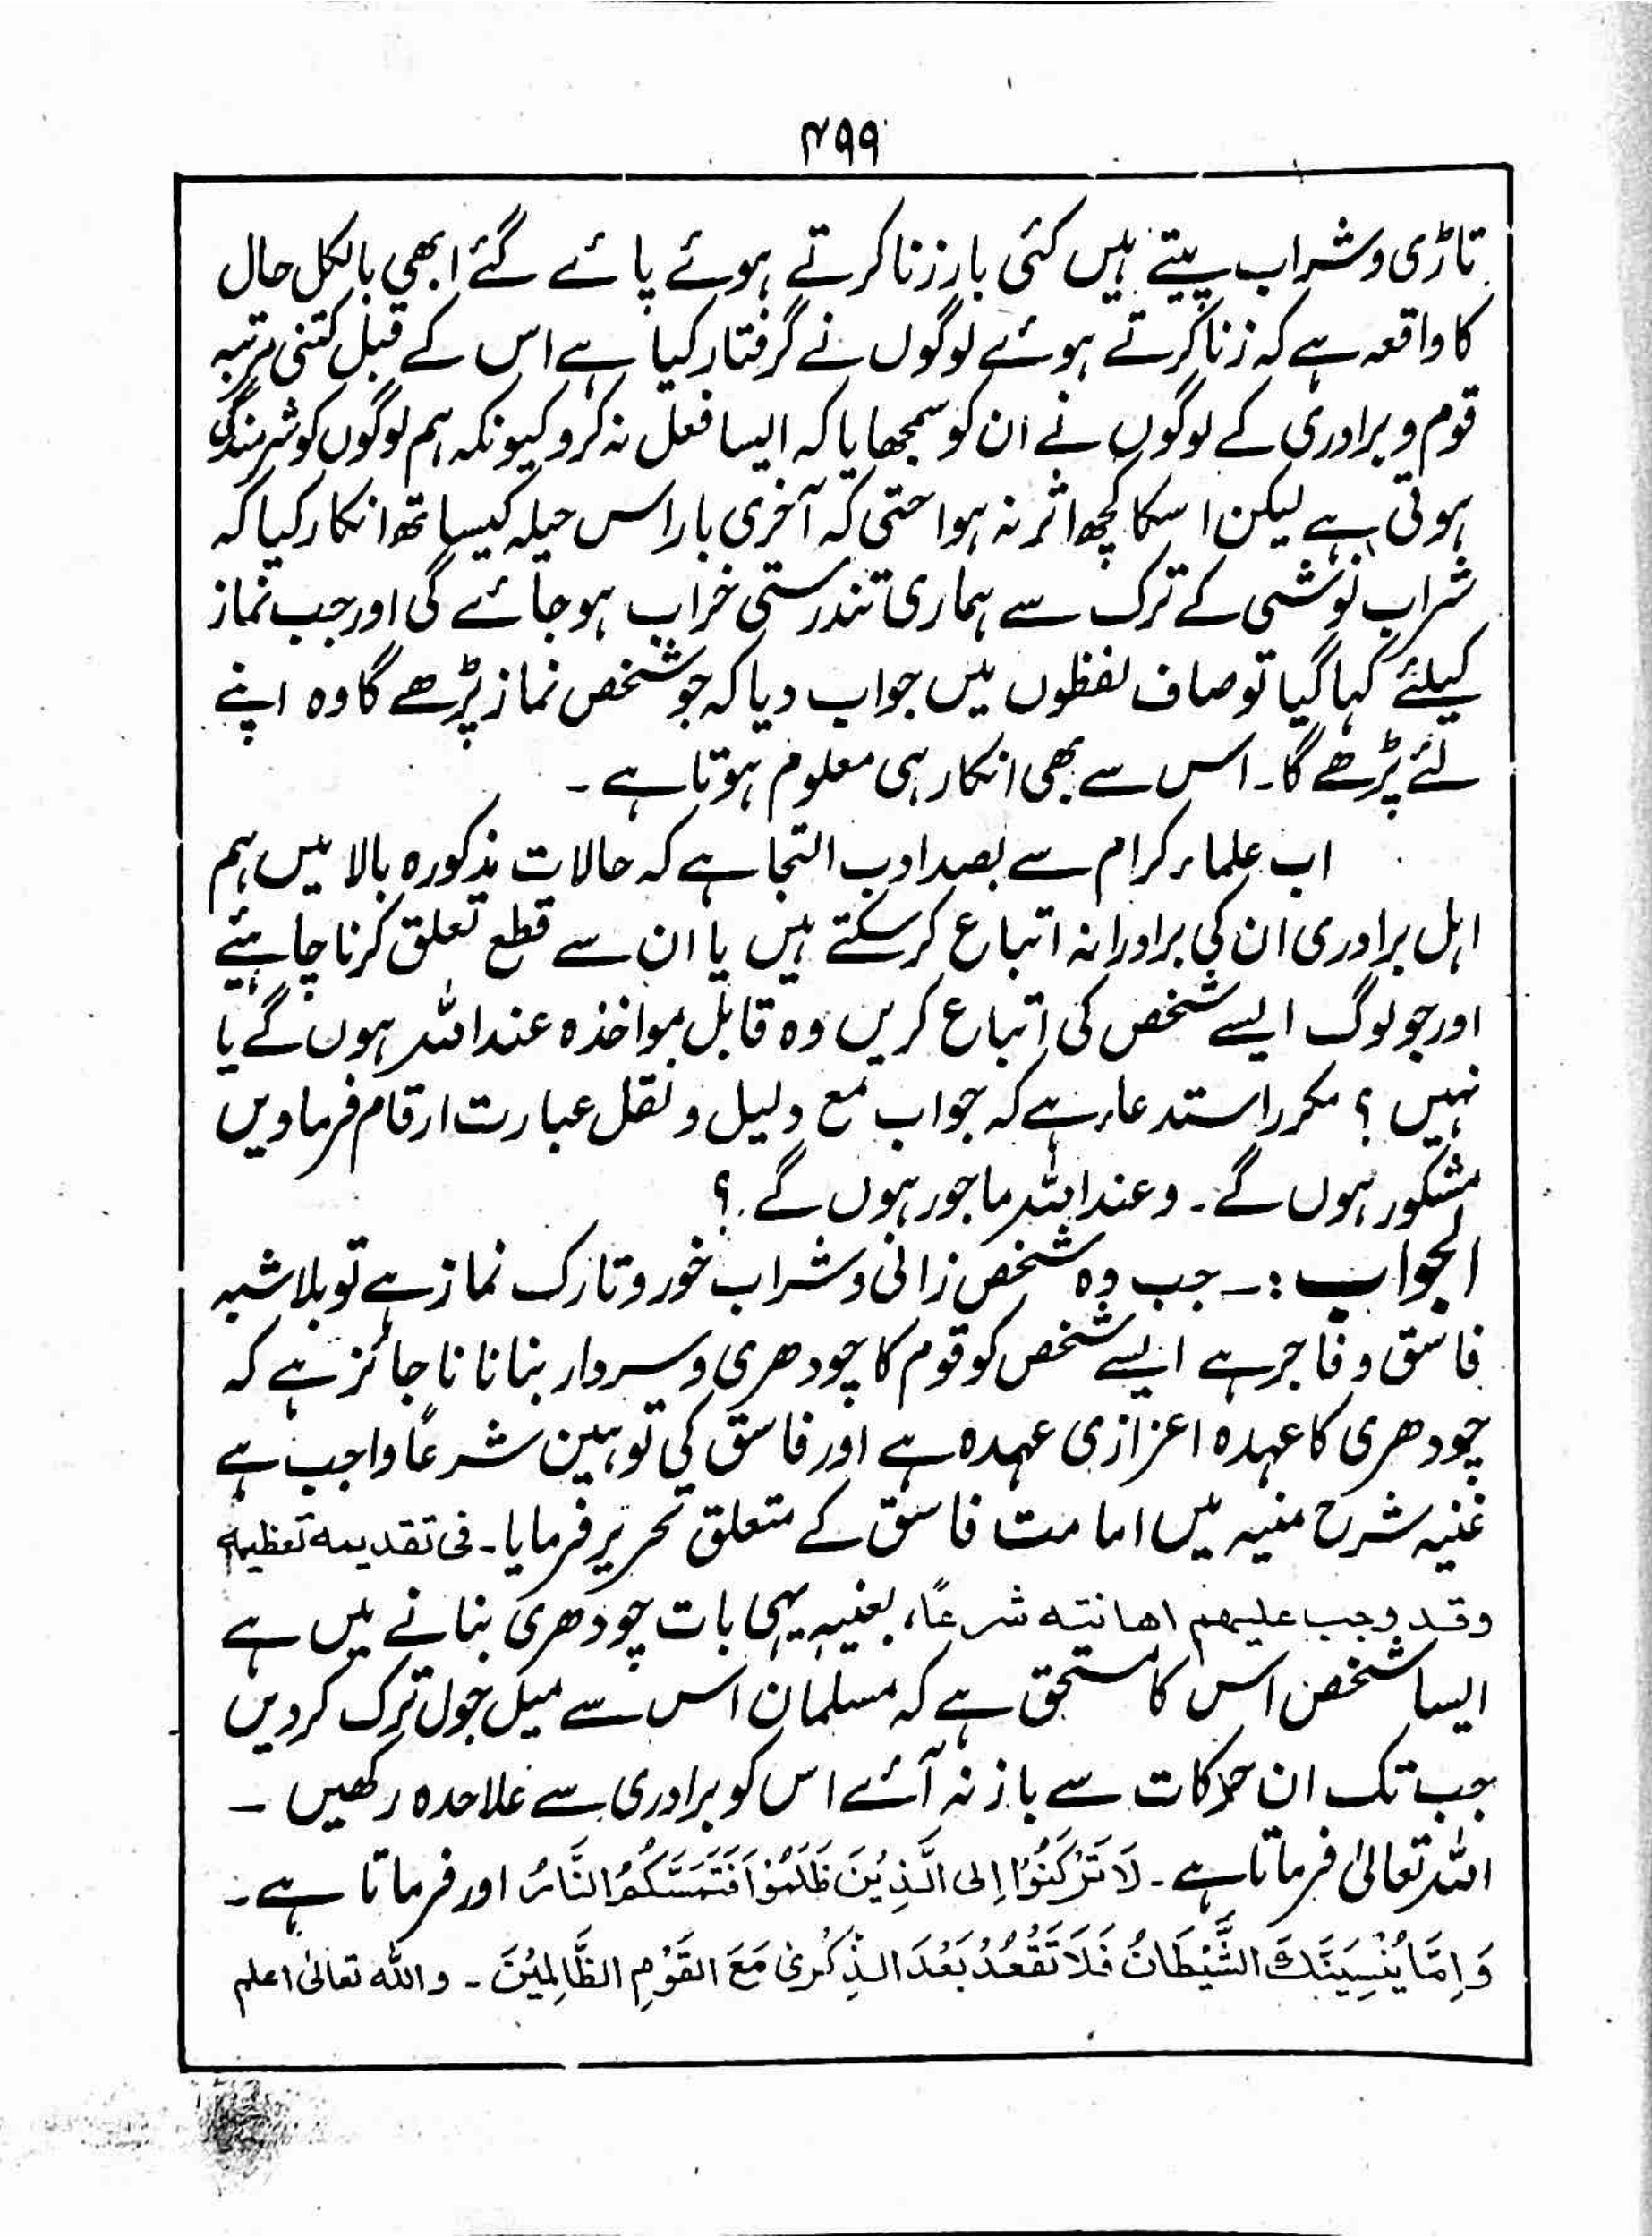 ۴۹۹
تاڑی و شراب پیتے ہیں کئی بار زنا کرتے ہوئے پائے گئے ابھی بالکل حال
کا واقعہ ہے کہ زنا کرتے ہوئے لوگوں نے گرفتار کیا ہے اس کے قبل کتنی مرتبہ
قوم و برادری کے لوگوں نے ان کو سمجھایا کہ ایسا فعل نہ کرو کیونکہ ہم لوگوں کو شرمندگی
ہوتی ہے لیکن اسکا کچھ اثر نہ ہوا حتی کہ آخری بار اس حیلہ کیساتھ انکار کیا کہ
شراب نوشی کے ترک سے ہماری تندرستی خراب ہو جائے گی اور جب نماز
کیلئے کہا گیا تو صاف لفظوں میں جواب دیا کہ جو شخص نماز پڑھے گا وہ اپنے
لئے پڑھے گا۔ اس سے بھی انکار ہی معلوم ہوتا ہے ۔
اب علماء کرام سے بصد ادب التجا ہے کہ حالات مذکورہ بالا میں ہم
اہل برادری ان کی برادرانہ اتباع کر سکتے ہیں یا ان سے قطع تعلق کرنا چاہیئے
اور جو لوگ ایسے شخص کی اتباع کریں وہ قابل مواخذہ عند اللہ ہوں گے یا
نہیں ؟ مکرر استدعاء ہے کہ جواب مع دلیل و نقل عبارت ارقام فرماویں
مشکور ہوں گے ۔ و عند اللہ ماجور ہوں گے ؟
الجواب :۔ جب وہ شخص زانی و شراب خور و تارک نماز ہے تو بلاشبہ
فاسق و فاجر ہے ایسے شخص کو قوم کا چودھری و سردار بنانا ناجائز ہے کہ
چودھری کا عہدہ اعزازی عہدہ ہے اور فاسق کی توہین شرعاً واجب ہے
غنیہ شرح منیہ میں امامت فاسق کے متعلق تحریر فرمایا۔ فی تقدیمہ تعظیمہ
وقد وجب علیہم اھانتہ شرعاً، بعینہ یہی بات چودھری بنانے میں ہے
ایسا شخص اس کا مستحق ہے کہ مسلمان اس سے میل جول ترک کردیں
جب تک ان حرکات سے باز نہ آئے اس کو برادری سے علاحدہ رکھیں ۔
اللہ تعالیٰ فرماتا ہے ۔ لَا تَرْكَنُوْا اِلی الَّذِیْنَ ظَلَمُوْا فَتَمَسَّكُمُ النَّارُ اور فرماتا ہے ۔
وَاِمَّا یُنْسِیَنَّكَ الشَّیْطَانُ فَلَا تَقْعُدْ بَعْدَ الذِّكْرىٰ مَعَ الْقَوْمِ الظَّالِمِیْنَ ۔ واللہ تعالیٰ اعلم